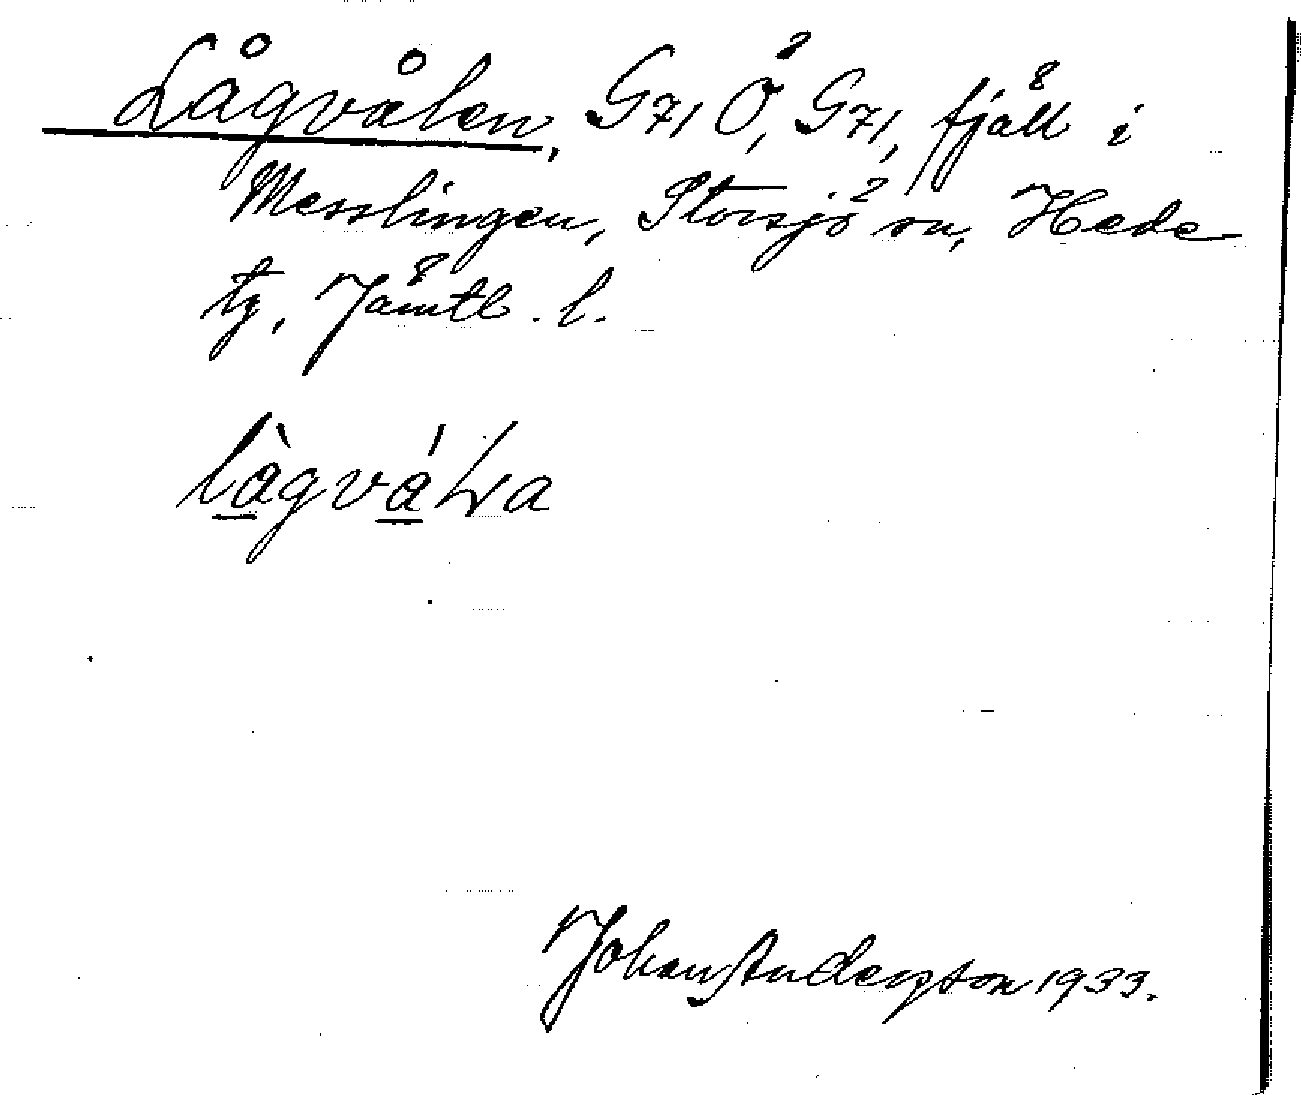 Lågvålen, G71 Ö, G71, fjäll i
Messlingen, Storsjö sn, Hede
tg, Jämtl. l.
Johan Anderson 1933.